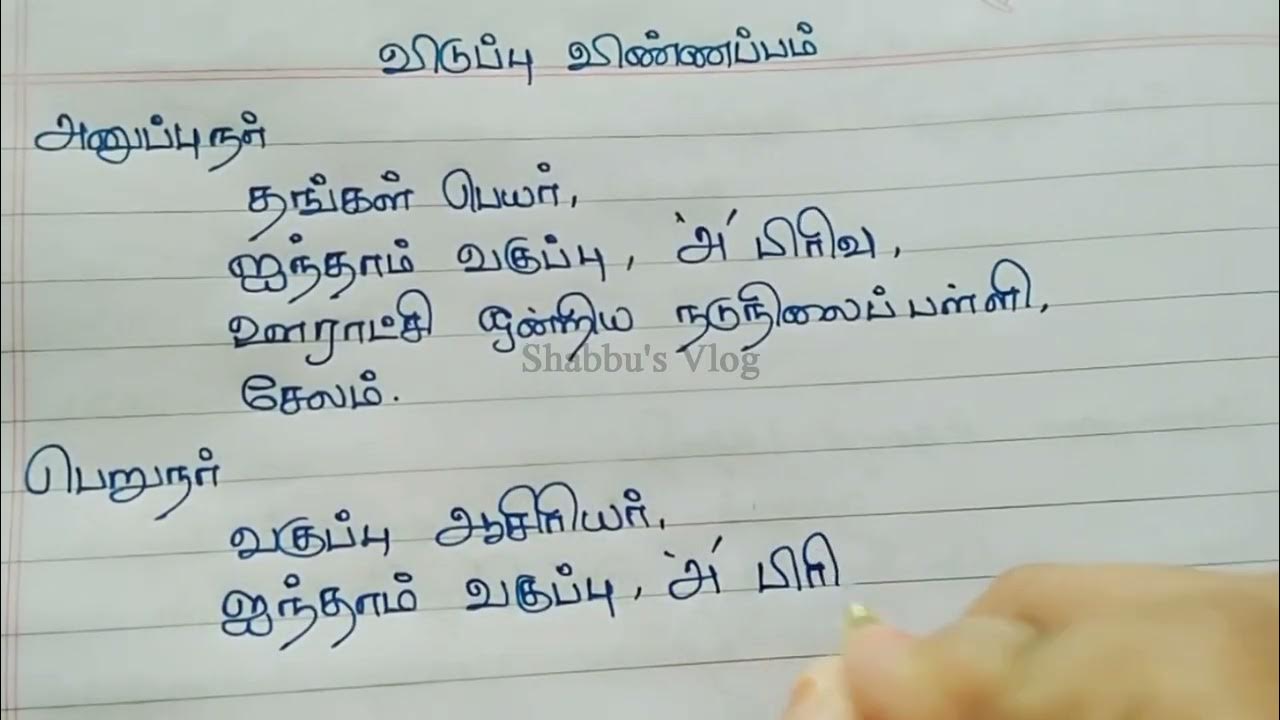 விடுப்பு விண்ணப்பம்
அனுப்புநர்
தங்கள் பெயர்,
ஐந்தாம் வகுப்பு, 'அ' பிரிவு,
ஊராட்சி ஒன்றிய நடுநிலைப்பள்ளி,
Shabbu's Vlog
சேலம்.
பெறுநர்
வகுப்பு ஆசிரியர்,
ஐந்தாம் வகுப்பு, 'அ' பிரி